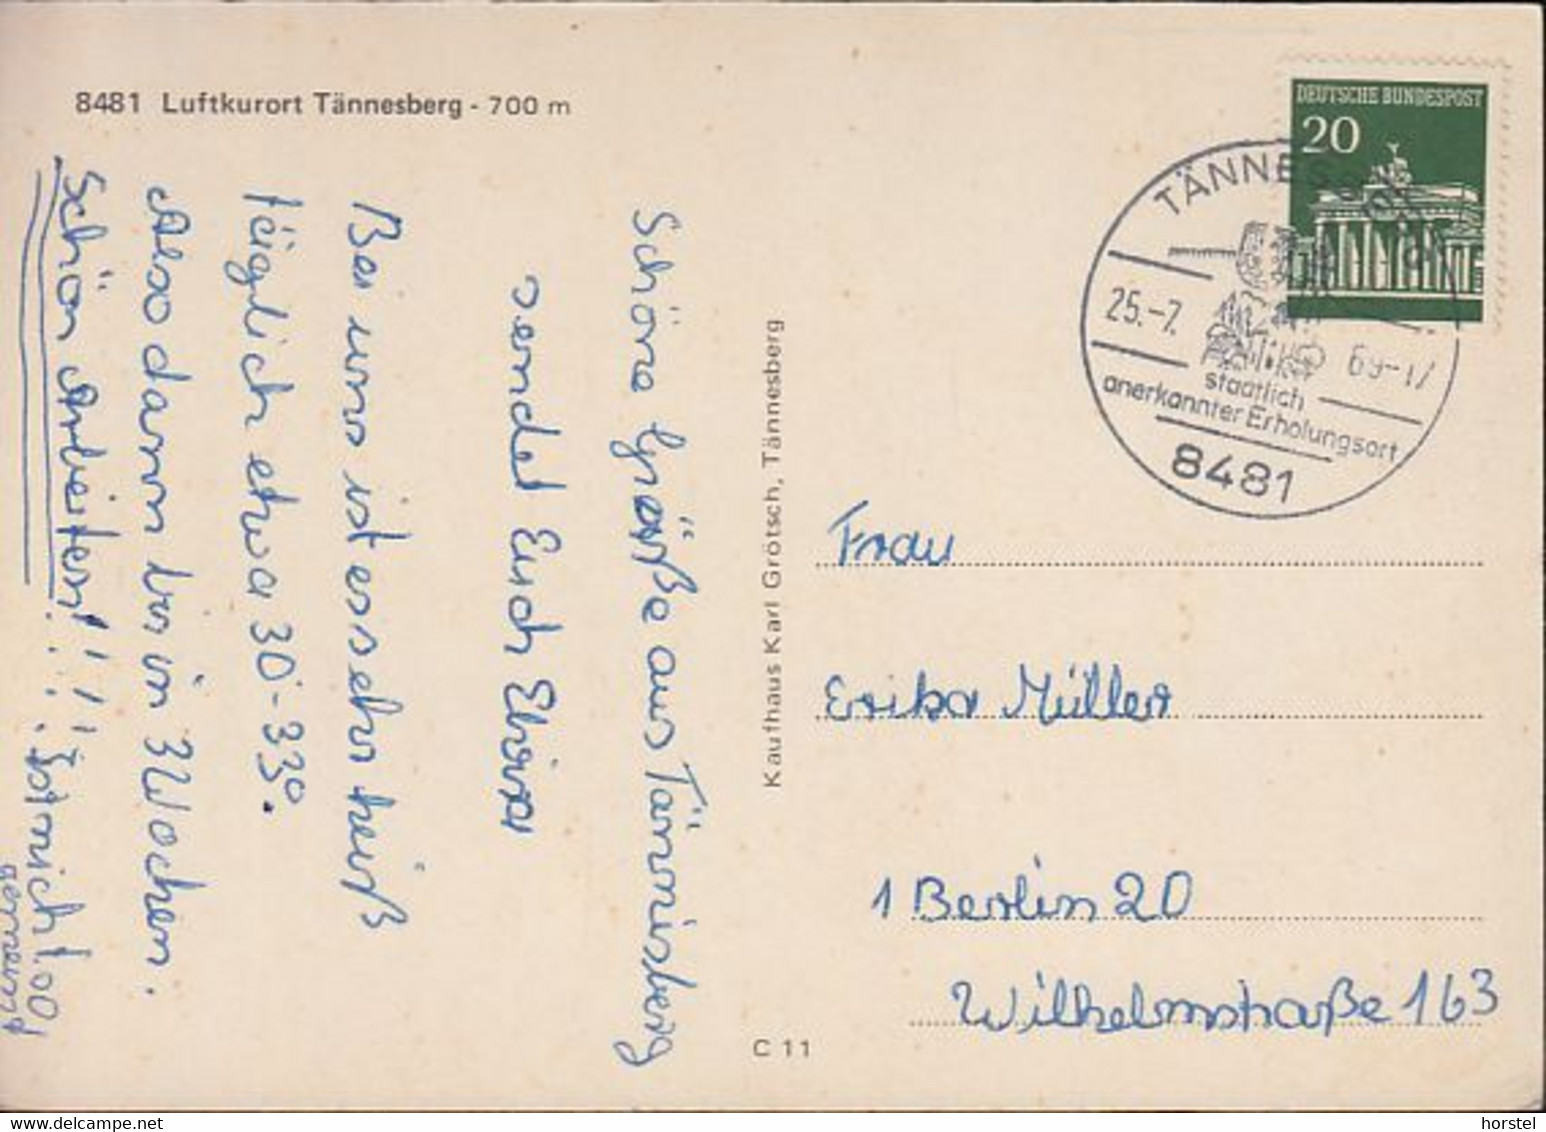 8481 Luftkurort Tännesberg - 700 m
Schöne Grüße aus Tännisberg
sendet Euch Elvira
Bei uns ist es sehr heiß
täglich etwa 30-33°.
Also dann bis in 3 Wochen.
Schön Arbeiten!!!!
Ist nicht so
gemeint
Kaufhaus Karl Grötsch, Tännesberg
C 11
DEUTSCHE BUNDESPOST
20
TÄNNESBERG
25.-7. 69-17
staatlich
anerkannter Erholungsort
8481
Frau
Erika Müller
1 Berlin 20
Wilhelmstraße 163
horstel